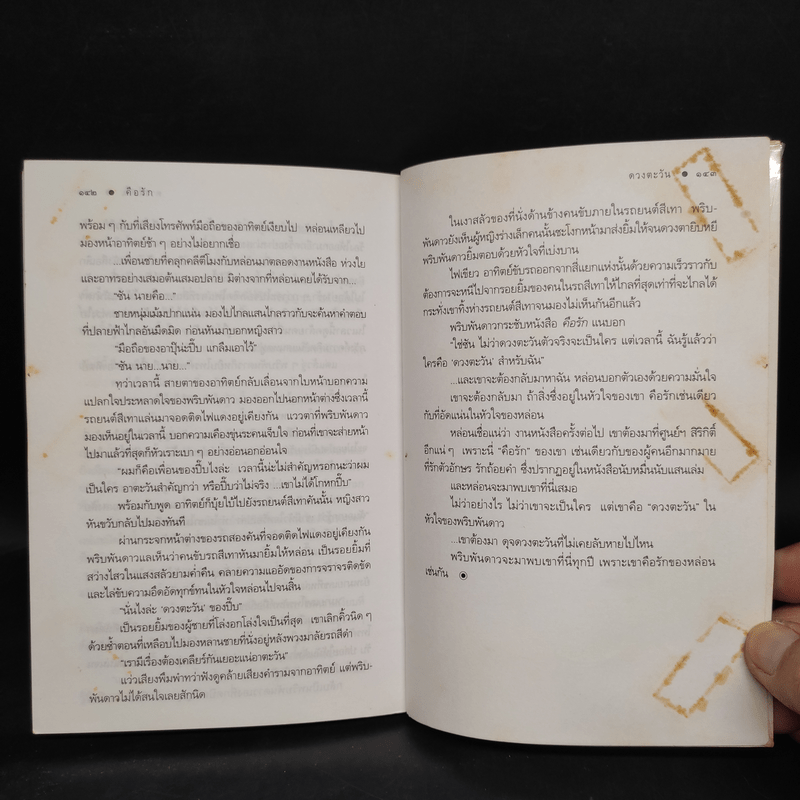 ๑๔๒ ● คือรัก
พร้อม ๆ กับที่เสียงโทรศัพท์มือถือของอาทิตย์เงียบไป หล่อนเหลียวไป
มองหน้าอาทิตย์ช้า ๆ อย่างไม่อยากเชื่อ
...เพื่อนชายที่คลุกคลีตีโมงกับหล่อนมาตลอดงานหนังสือ ห่วงใย
และอาทรอย่างเสมอต้นเสมอปลาย มิต่างจากที่หล่อนเคยได้รับจาก...
“ซัน นายคือ...”
ชายหนุ่มเม้มปากแน่น มองไปไกลแสนไกลราวกับจะค้นหาคำตอบ
ที่ปลายฟ้าไกลอันมืดมิด ก่อนหันมาบอกหญิงสาว
“มือถือของอาปุ๊น่ะปิ๊บ แกลืมเอาไว้”
“ซัน นาย...นาย...”
ทว่าเวลานี้ สายตาของอาทิตย์กลับเลื่อนจากใบหน้าบอกความ
แปลกใจประหลาดใจของพริบพันดาว มองออกไปนอกหน้าต่างซึ่งเวลานี้
รถยนต์สีเทาแล่นมาจอดติดไฟแดงอยู่เคียงกัน แววตาที่พริบพันดาว
มองเห็นอยู่ในเวลานี้ บอกความเคืองขุ่นระคนเจ็บใจ ก่อนที่เขาจะส่ายหน้า
ไปมาแล้วที่สุดก็หัวเราะเบา ๆ อย่างอ่อนอกอ่อนใจ
“ผมก็คือเพื่อนของปิ๊บไงล่ะ เวลานี้น่ะไม่สำคัญหรอกนะว่าผม
เป็นใคร อาตะวันสำคัญกว่า หรือปิ๊บว่าไม่จริง ...เขาไม่ได้โกหกปิ๊บ”
พร้อมกับพูด อาทิตย์ก็บุ้ยใบ้ไปยังรถยนต์สีเทาคันนั้น หญิงสาว
หันขวับกลับไปมองทันที
ผ่านกระจกหน้าต่างของรถสองคันที่จอดติดไฟแดงอยู่เคียงกัน
พริบพันดาวแลเห็นว่าคนขับรถสีเทาหันมายิ้มให้หล่อน เป็นรอยยิ้มที่
สว่างไสวในแสงสลัวยามค่ำคืน คลายความแออัดของการจราจรติดขัด
และไล่ขับความอึดอัดทุกข์ทนในหัวใจหล่อนไปจนสิ้น
“นั่นไงล่ะ ‘ดวงตะวัน’ ของปิ๊บ”
เป็นรอยยิ้มของผู้ชายที่โล่งอกโล่งใจเป็นที่สุด เขาเลิกคิ้วนิด ๆ
ด้วยซ้ำตอนที่เหลือบไปมองหลานชายที่นั่งอยู่หลังพวงมาลัยรถสีดำ
“เรามีเรื่องต้องเคลียร์กันเยอะแน่อาตะวัน”
แว่วเสียงพึมพำทว่าฟังดูคล้ายเสียงคำรามจากอาทิตย์ แต่พริบ-
พันดาวไม่ได้สนใจเลยสักนิด
ดวงตะวัน ● ๑๔๓
ในเงาสลัวของที่นั่งด้านข้างคนขับภายในรถยนต์สีเทา พริบ-
พันดาวยังเห็นผู้หญิงร่างเล็กคนนั้นชะโงกหน้ามาส่งยิ้มให้จนดวงตายิบหยี
พริบพันดาวยิ้มตอบด้วยหัวใจที่เบ่งบาน
ไฟเขียว อาทิตย์ขับรถออกจากสี่แยกแห่งนั้นด้วยความเร็วราวกับ
ต้องการจะหนีไปจากรอยยิ้มของคนในรถสีเทาให้ไกลที่สุดเท่าที่จะไกลได้
กระทั่งเขาทิ้งห่างรถยนต์สีเทาจนมองไม่เห็นกันอีกแล้ว
พริบพันดาวกระชับหนังสือ คือรัก แนบอก
“ใช่ซัน ไม่ว่าดวงตะวันตัวจริงจะเป็นใคร แต่เวลานี้ ฉันรู้แล้วว่า
ใครคือ ‘ดวงตะวัน’ สำหรับฉัน”
...และเขาจะต้องกลับมาหาฉัน หล่อนบอกตัวเองด้วยความมั่นใจ
เขาจะต้องกลับมา ถ้าสิ่งซึ่งอยู่ในหัวใจของเขา คือรักเช่นเดียว
กับที่อัดแน่นในหัวใจของหล่อน
หล่อนเชื่อแน่ว่า งานหนังสือครั้งต่อไป เขาต้องมาที่ศูนย์ฯ สิริกิติ์
อีกแน่ ๆ เพราะนี่ “คือรัก” ของเขา เช่นเดียวกับของผู้คนอีกมากมาย
ที่รักตัวอักษร รักถ้อยคำ ซึ่งปรากฏอยู่ในหนังสือนับหมื่นนับแสนเล่ม
และหล่อนจะมาพบเขาที่นี่เสมอ
ไม่ว่าอย่างไร ไม่ว่าเขาจะเป็นใคร แต่เขาคือ “ดวงตะวัน” ใน
หัวใจของพริบพันดาว
...เขาต้องมา ดุจดวงตะวันที่ไม่เคยลับหายไปไหน
พริบพันดาวจะมาพบเขาที่นี่ทุกปี เพราะเขาคือรักของหล่อน
เช่นกัน